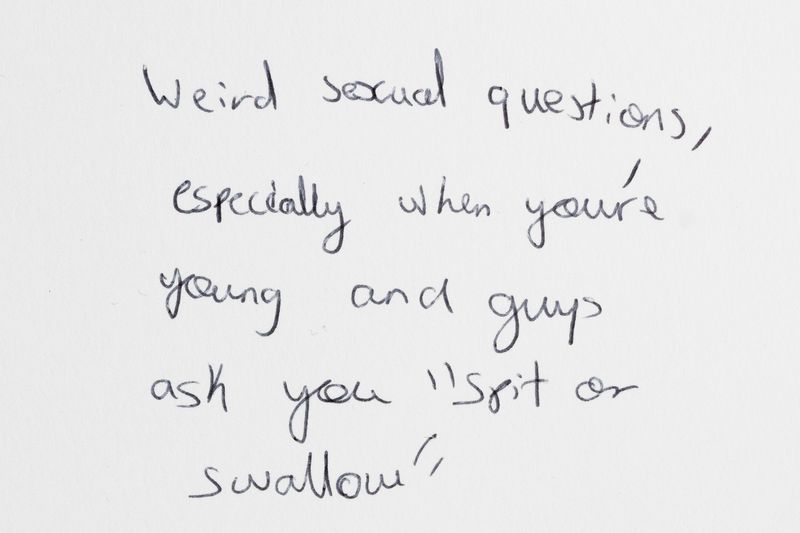 Weird sexual questions,
especially when you're
young and guys
ask you "Spit or
swallow"